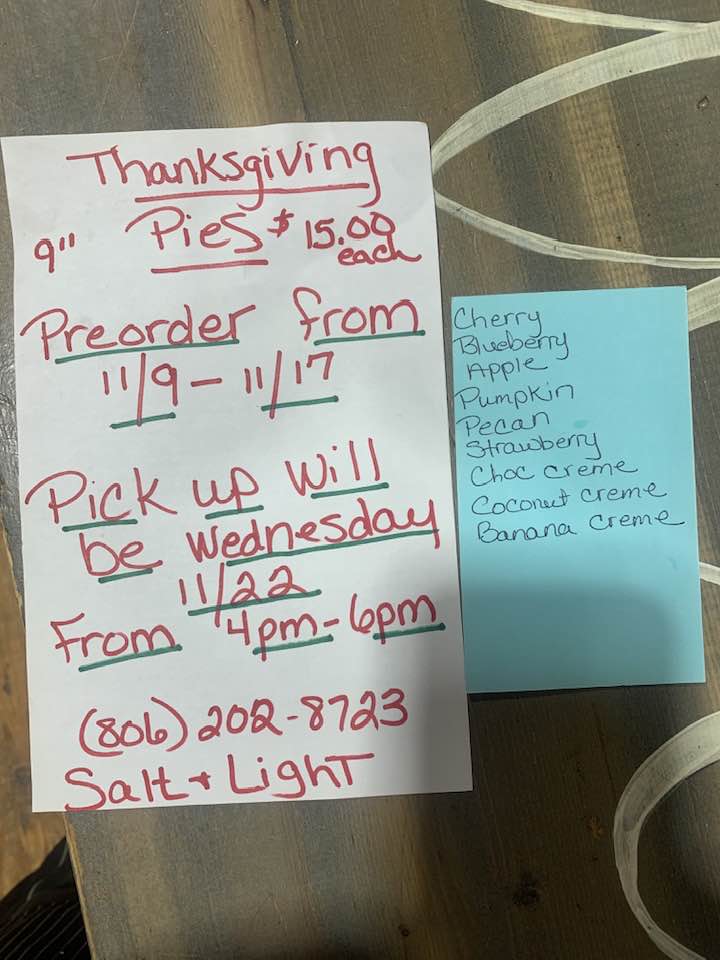 Thanksgiving
9" Pies $15.00
each
Preorder from
11/9 - 11/17
Pick up will
be Wednesday
11/22
From 4pm-6pm
(806) 202-8723
Salt + Light
Cherry
Blueberry
Apple
Pumpkin
Pecan
Strawberry
Choc creme
Coconut creme
Banana creme